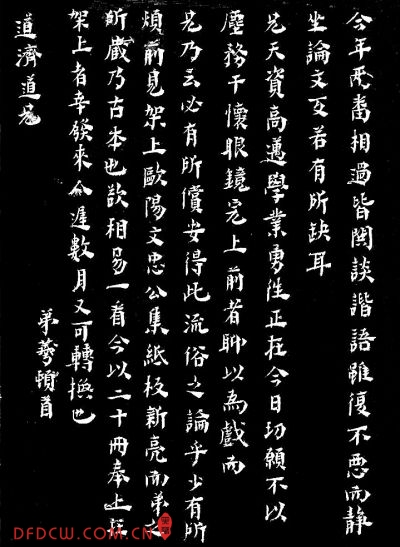 今年两番相過皆閑談諧語雖復不惡而静
坐論文反若有所缺耳
兄天資高邁學業勇進正在今日切願不以
塵務干懷眼鏡完上前者聊以為戲而
兄乃云必有所償安得此流俗之論乎少有所
煩前見架上歐陽文忠公集紙板新亮而弟
所蔵乃古本也欲相易一看今以二十冊奉上
架上者幸發來今遲數月又可轉換也
弟 頓首
道濟道兄
DFDCW.COM.CN